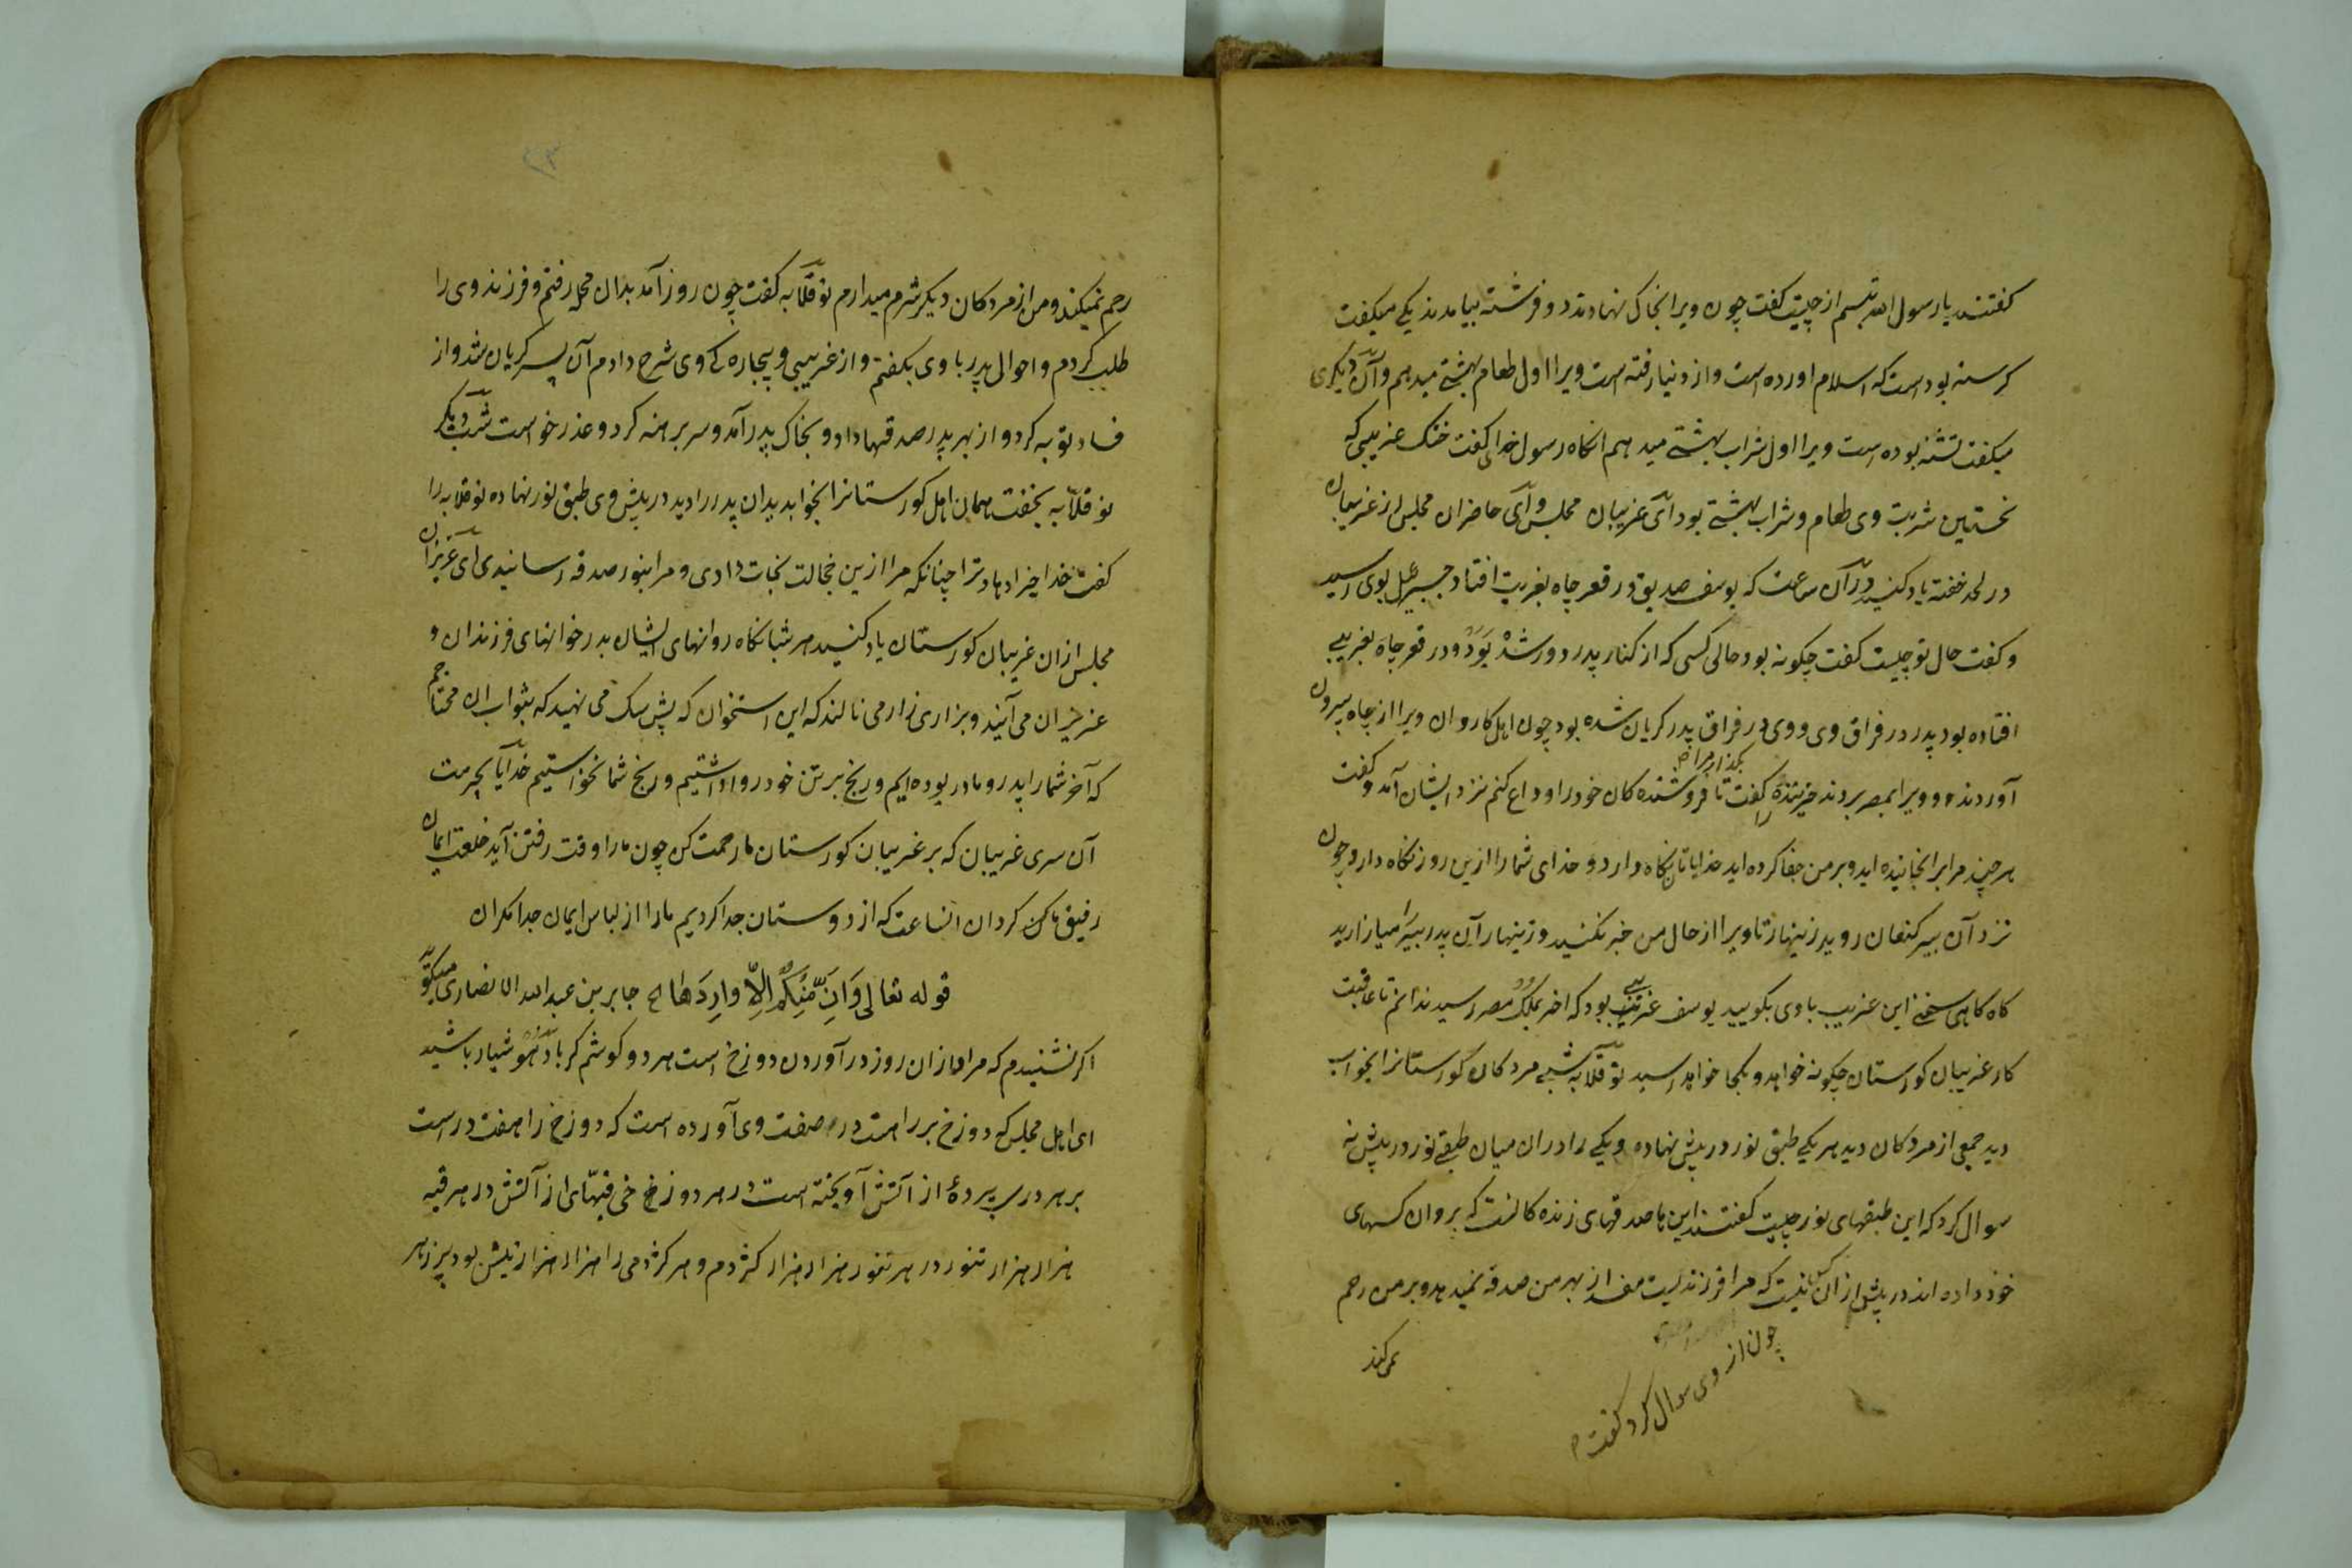 کفتند یا رسول الله تبسم از چیست کفت چون ویرا بخاک نهادند دو فرشته بیامدند یکی میکفت
کرسنه بودست که اسلام آورده است و از دنیا رفته است ویرا اول طعام بهشتی میدهم و آن دیکری
میکفت تشنه بوده است ویرا اول شراب بهشتی میدهم انکاه رسول خدای کفت خنک غریبی که
نخستین شربت وی طعام و شراب بهشتی بود ای غریبان مجلس و ای حاضران مجلس از غریبان
در لحد خفته یاد کنید در آن ساعت که یوسف صدیق در قعر چاه بغربت افتاد جبرییل بوی رسید
و کفت حال تو چیست کفت چکونه بود حالی کسی که از کنار پدر دور شد بود و در قعر چاه بغریبی
افتاده بود پدر در فراق وی و وی در فراق پدر کریان شده بود چون اهل کاروان ویرا از چاه بیرون
آوردند و ویرا بمصر بردند خرنده را کفت بکذار مرا تا فروشنده کان خود را وداع کنم نزد ایشان آمد و کفت
هر چند مرا برانجانیده اید و بر من جفا کرده اید خدایا تان نکاه دارد و خدای شما را ازین روز نکاه دارد و چون
نزد آن پیر کنعان روید زینهار تا ویرا از حال من خبر نکنید و زینهار آن پدر پیر را میازارید
کاه کاهی سخن این غریب با وی بکویید یوسف غریب بود که اخر بملک مصر رسید ندانم تا عاقبت
کار غریبان کورستان چکونه خواهد و بکجا خواهد رسید بو قلابه شبی مردکان کورستانرا بخواب
دید جمعی از مردکان دید هر یکی طبق نور در پیش نهاده و یکی را در ان میان طبقی نور در پیش نه
سوال کرد که این طبقهای نور چیست کفتند این ها صدقهای زنده کانست که بروان کسهای
خود داده اند در پیش ازان کس نیست که مرا فرزندیست مفسد از بهر من صدقه نمیدهد و بر من رحم
نمی کند
چون از وی سوال کرد کفت
رحم نمیکند و من از مردکان دیکر شرم میدارم بو قلابه کفت چون روز آمد بدان محله رفتم و فرزند وی را
طلب کردم و احوال پدر با وی بکفتم و از غریبی و بیچاره کی وی شرح دادم آن پسر کریان شد و از
فساد توبه کرد و از بهر پدر صدقها داد و بخاک پدر آمد و سر برهنه کرد و عذر خواست شب دیکر
بو قلابه بخفت همان اهل کورستانرا بخواب دید ان پدر را دید در پیش وی طبق نور نهاده بو قلابه را
کفت خدا خیر دهاد ترا چنانکه مرا ازین خجالت نجات دادی و مرا بنور صدقه رسانیدی ای عزیزان
مجلس ازان غریبان کورستان یاد کنید هر شبانکاه روانهای ایشان بدر خوانهای فرزندان و
عزیزان می آیند و بزاری زار می نالند که این استخوان که پیش سک می نهید که بثواب ان محتاجیم
که آخر شما را پدر و مادر بوده ایم و رنج بر تن خود روا داشتیم و رنج شما نخواستیم خدایا بحرمت
آن سری غریبان که بر غریبان کورستان ما رحمت کن چون ما را وقت رفتن آید خلعت ایمان
رفیق ما کن کردان انساعت که از دوستان جدا کردیم ما را از لباس ایمان جدا مکردان
قوله تعالی وَاِنْ مِّنْكُمْ اِلاَّ وارِدُهَا ح جابر بن عبد الله الانصاری میکوید
اکر نشنیدم که مراد ازان روز در آوردن دوزخ است هر دو کوشم کر باد هوشیار باشید
ای اهل مجلس که دوزخ بر راهست در صفت وی آورده است که دوزخ را هفت درست
بر هر در پردهٔ از آتش آویخته است در هر دوزخی قبهای از آتش در هر قبه
هزار هزار تنور در هر تنور هزار هزار کژدم و هر کژدمی را هزار هزار نیش بود پر زهر